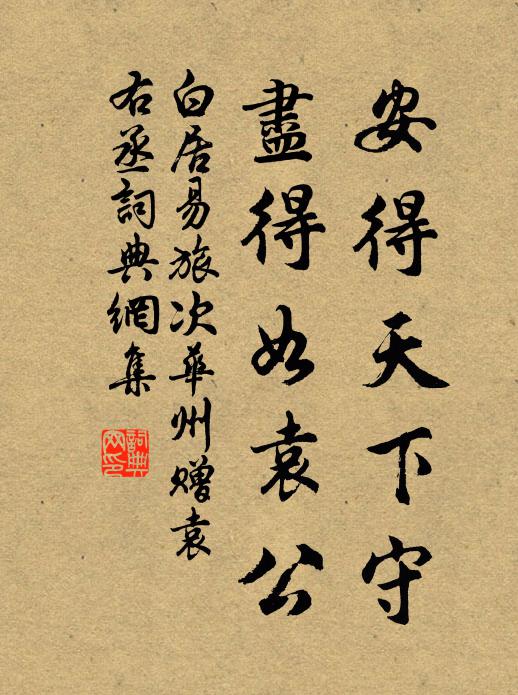 安得天下守
盡得如袁公
白居易旅次華州贈袁
右丞詞典網集
詞典網印